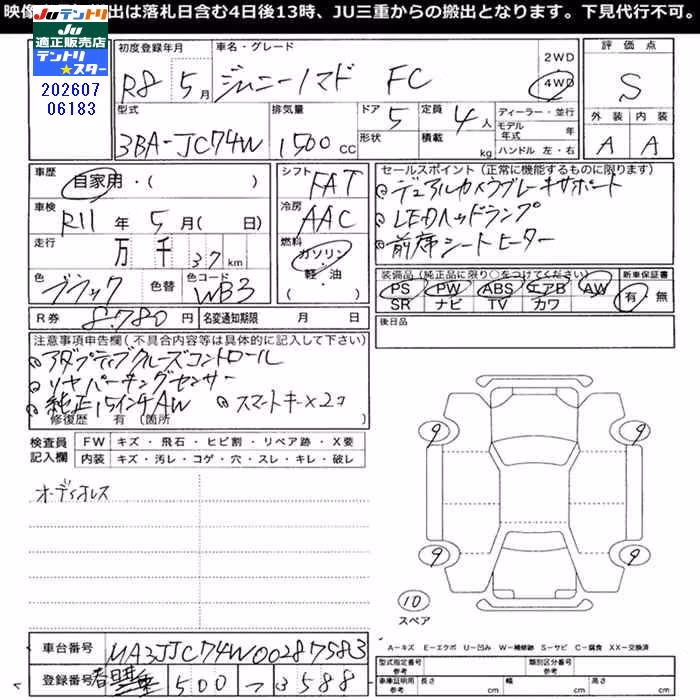 映像 出は落札日含む4日後13時、JU三重からの搬出となります。下見代行不可。
JUテントリ
JU
適正販売店
テントリ
★スター
202607
06183
初度登録年月 車名・グレード 評価点
R8 5月 ジムニーノマド FC 2WD 4WD S
型式 排気量 ドア 定員 ディーラー・並行 外装 内装
3BA-JC74W 1500cc 5 4人 モデル年式 年 A A
形状 積載 kg ハンドル 左・右
車歴 自家用・( ) シフト FAT
車検 R11年 5月( 日) 冷房 AAC
走行 万 千 37km 燃料 ガソリン・軽・油
色 ブラック 色替 色コード WB3
R券 8,780円 名変通知期限 月 日
セールスポイント(正常に機能するものに限ります)
デュアルカメラブレーキサポート
LEDヘッドランプ
前席シートヒーター
装備品(純正品に限り○をつけてください) 新車保証書
PS PW ABS エアB AW 有・無
SR ナビ TV カワ
後日品
注意事項申告欄(不具合内容等は具体的に記入して下さい)
アダプティブクルーズコントロール
リヤパーキングセンサー
純正15インチAW スマートキー×2コ
修復歴 有 (箇所 )
検査員記入欄 FW キズ・飛石・ヒビ割・リペア跡・X要
内装 キズ・汚レ・コゲ・穴・スレ・キレ・破レ
オーディオレス
9 9
9 9
10
スペア
A-キズ E-エクボ U-凹み W-補修跡 S-サビ C-腐食 XX-交換済
車台番号 MA3JJC74W00287583
登録番号 春日井 500 つ 3588
型式指定番号 参考 類別区分番号 参考
車庫証明用 参考 長さ cm 幅 cm 高さ cm